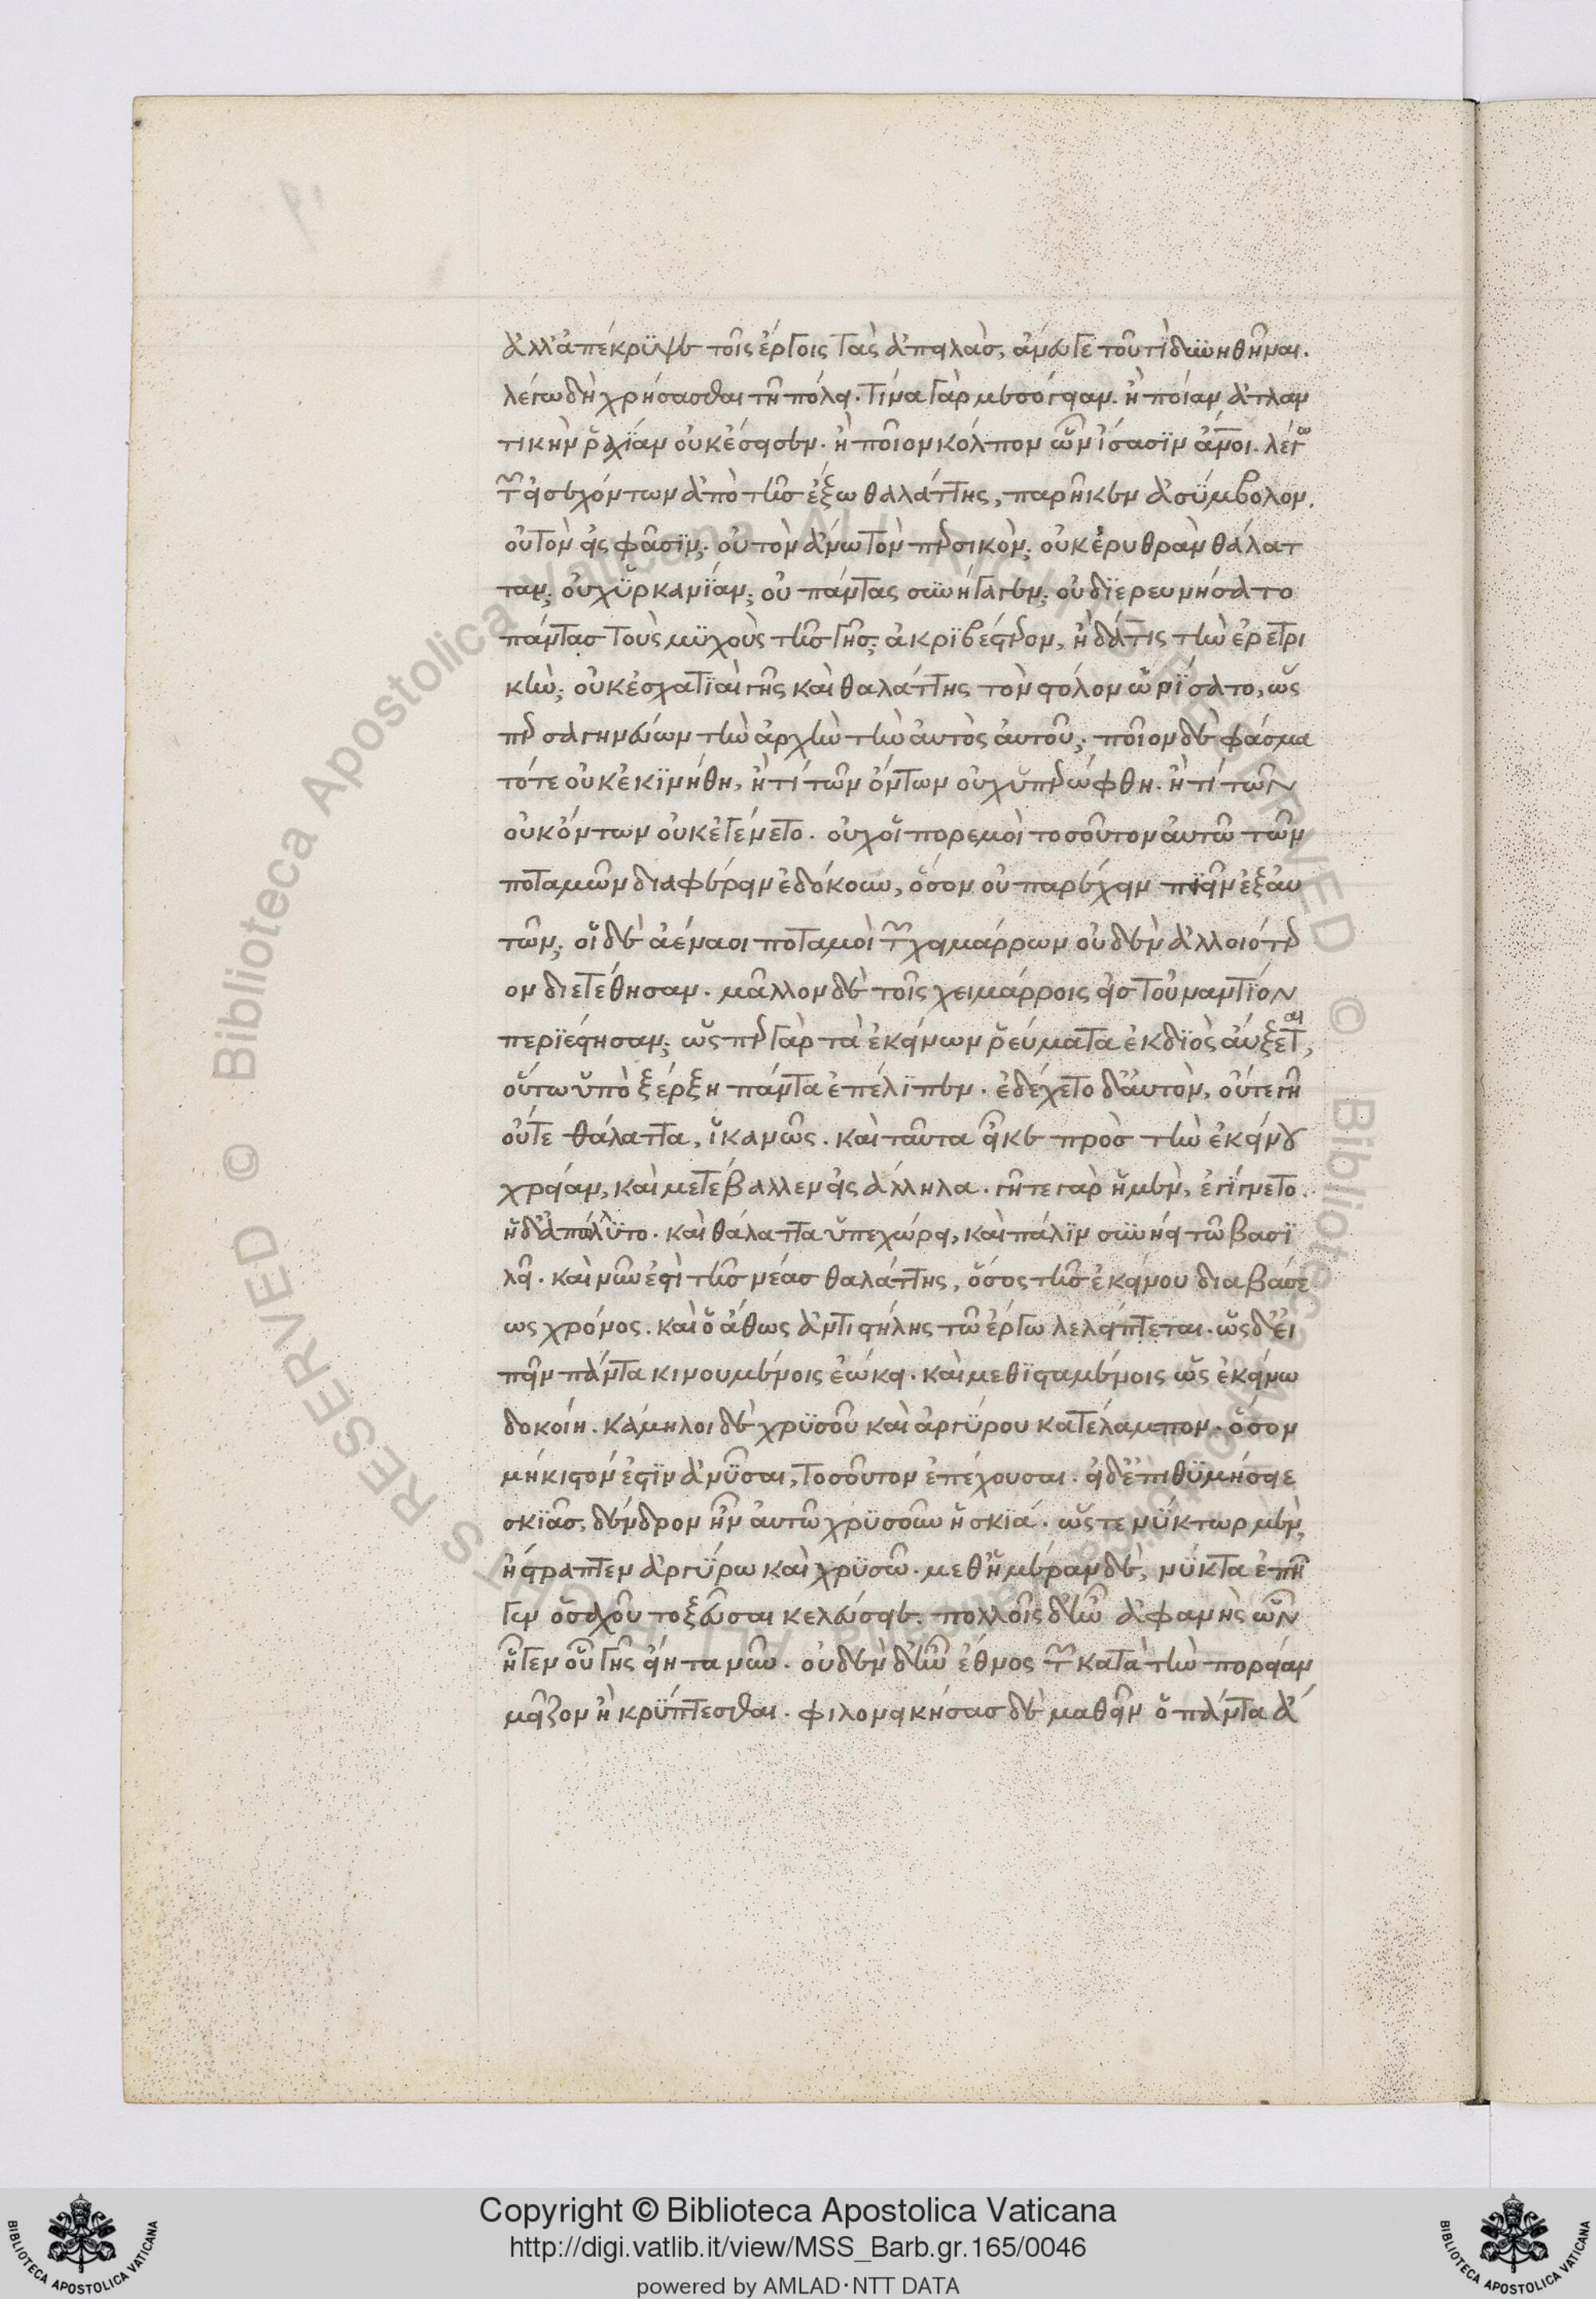 ἀλλ' ἀπέκρυψε τοῖς ἔργοις τὰς ἀπειλὰς, ἄνευγε τοῦ τϊ δυνηθῆναι.
λέγω δὴ χρήσασθαι τῇ πόλει. τίνα γὰρ μεσόγειαν. ἢ ποίαν ἀτλαν
τικὴν ῥαχΐαν οὐκ ἔσεισεν. ἢ ποῖον κόλπον ὧν ἴσασϊν ἄνθρωποι. λέγω
τῶν εἰσεχόντων ἀπὸ τῆς ἔξω θαλάττης, παρῆκεν ἀσύμβολον.
οὐ τὸν εἰς φᾶσϊν; οὐ τὸν ἄνω τὸν περσικὸν; οὐκ ἐρυθρὰν θάλατ
ταν; οὐχ ὑρκανΐαν; οὐ πάντας συνήγαγεν; οὐ διερευνήσατο
πάντας τοὺς μυχοὺς τῆς γῆς; ἀκριβέστερον, ἢ δάτις τὴν ἐρετρι
κὴν; οὐκ ἐσχατϊαὶ γῆς καὶ θαλάττης τὸν στόλον ὡρΐσατο, ὥς
περ σαγηνεύων τὴν ἀρχὴν τὴν αὐτὸς αὑτοῦ; ποῖον δὲ φάσμα
τότε οὐκ ἐκϊνήθη, ἢ τί τῶν ὄντων οὐχ ὑπερώφθη. ἢ τί τῶν
οὐκ ὄντων οὐκ ἐγένετο. οὐχ οἱ πορεμοὶ τοσοῦτον αὐτῶ τῶν
ποταμῶν διαφέρειν ἐδόκουν, ὅσον οὐ παρέχειν πϊεῖν ἐξ αυ
τῶν; οἱ δὲ ἀέναοι ποταμοὶ τῶν χειμάρρων οὐδὲν ἀλλοιότερ
ον διετέθησαν. μᾶλλον δὲ τοῖς χειμάρροις εἰς τοὐναντϊόν
περϊέστησαν; ὥς περ γὰρ τὰ ἐκείνων ῥεύματα ἐκ δϊὸς αὔξεται,
οὕτω ὑπὸ ξέρξη πάντα ἐπέλϊπεν. ἐδέχετο δ' αὐτὸν, οὔτε γῆ
οὔτε θάλαττα, ἱκανῶς. καὶ ταῦτα εἷκε πρὸς τὴν ἐκείνου
χρείαν, καὶ μετέβαλλεν εἰς ἄλληλα. γῆ τε γὰρ ἡ μὲν, ἐγΐγνετο.
ἡ δ' ἀπόλλϋτο. καὶ θάλαττα ὑπεχώρει, καὶ πάλϊν συνήει τῶ βασϊ
λεῖ. καὶ νῦν ἐστὶ τῆς νέας θαλάττης, ὅσος τῆς ἐκείνου διαβάσε
ως χρόνος. καὶ ὁ ἄθως ἀντι στήλης τῶ ἔργω λελείπτεται. ὡς δ' εἰ
πεῖν πάντα κινουμένοις ἐώκει. καὶ μεθϊσταμένοις ὡς ἐκείνω
δοκοίη. κάμηλοι δὲ χρϋσοῦ καὶ ἀργϋρου κατέλαμπον. ὅσον
μήκιστόν ἐστϊν ἀνϋσαι, τοσοῦτον ἐπέχουσαι. εἰ δ' ἐπιθϋμήσειε
σκϊᾶς, δένδρον ἦν αὐτῶ χρϋσοῦν ἡ σκϊά. ὥς τε νϋκτωρ μὲν,
ἤστραπτεν ἀργϋρω καὶ χρϋσῶ. μεθ' ἡμέραν δὲ, νϋκτα ἐπῆ
γεν ὁσαχοῦ τοξεῦσαι κελεύσειε. πολλοῖς δ' ἦν ἀφανὴς ὢν
ᾗ γεν οὗ γῆς εἴη τα νῦν. οὐδὲν δ' ἦν ἔθνος τῶν κατὰ τὴν πορείαν
μεῖζον ἢ κρύπτεσθαι. φιλονεικήσας δὲ μαθεῖν ὁ πάντα ἀ
Copyright © Biblioteca Apostolica Vaticana
http://digi.vatlib.it/view/MSS_Barb.gr.165/0046
powered by AMLAD·NTT DATA